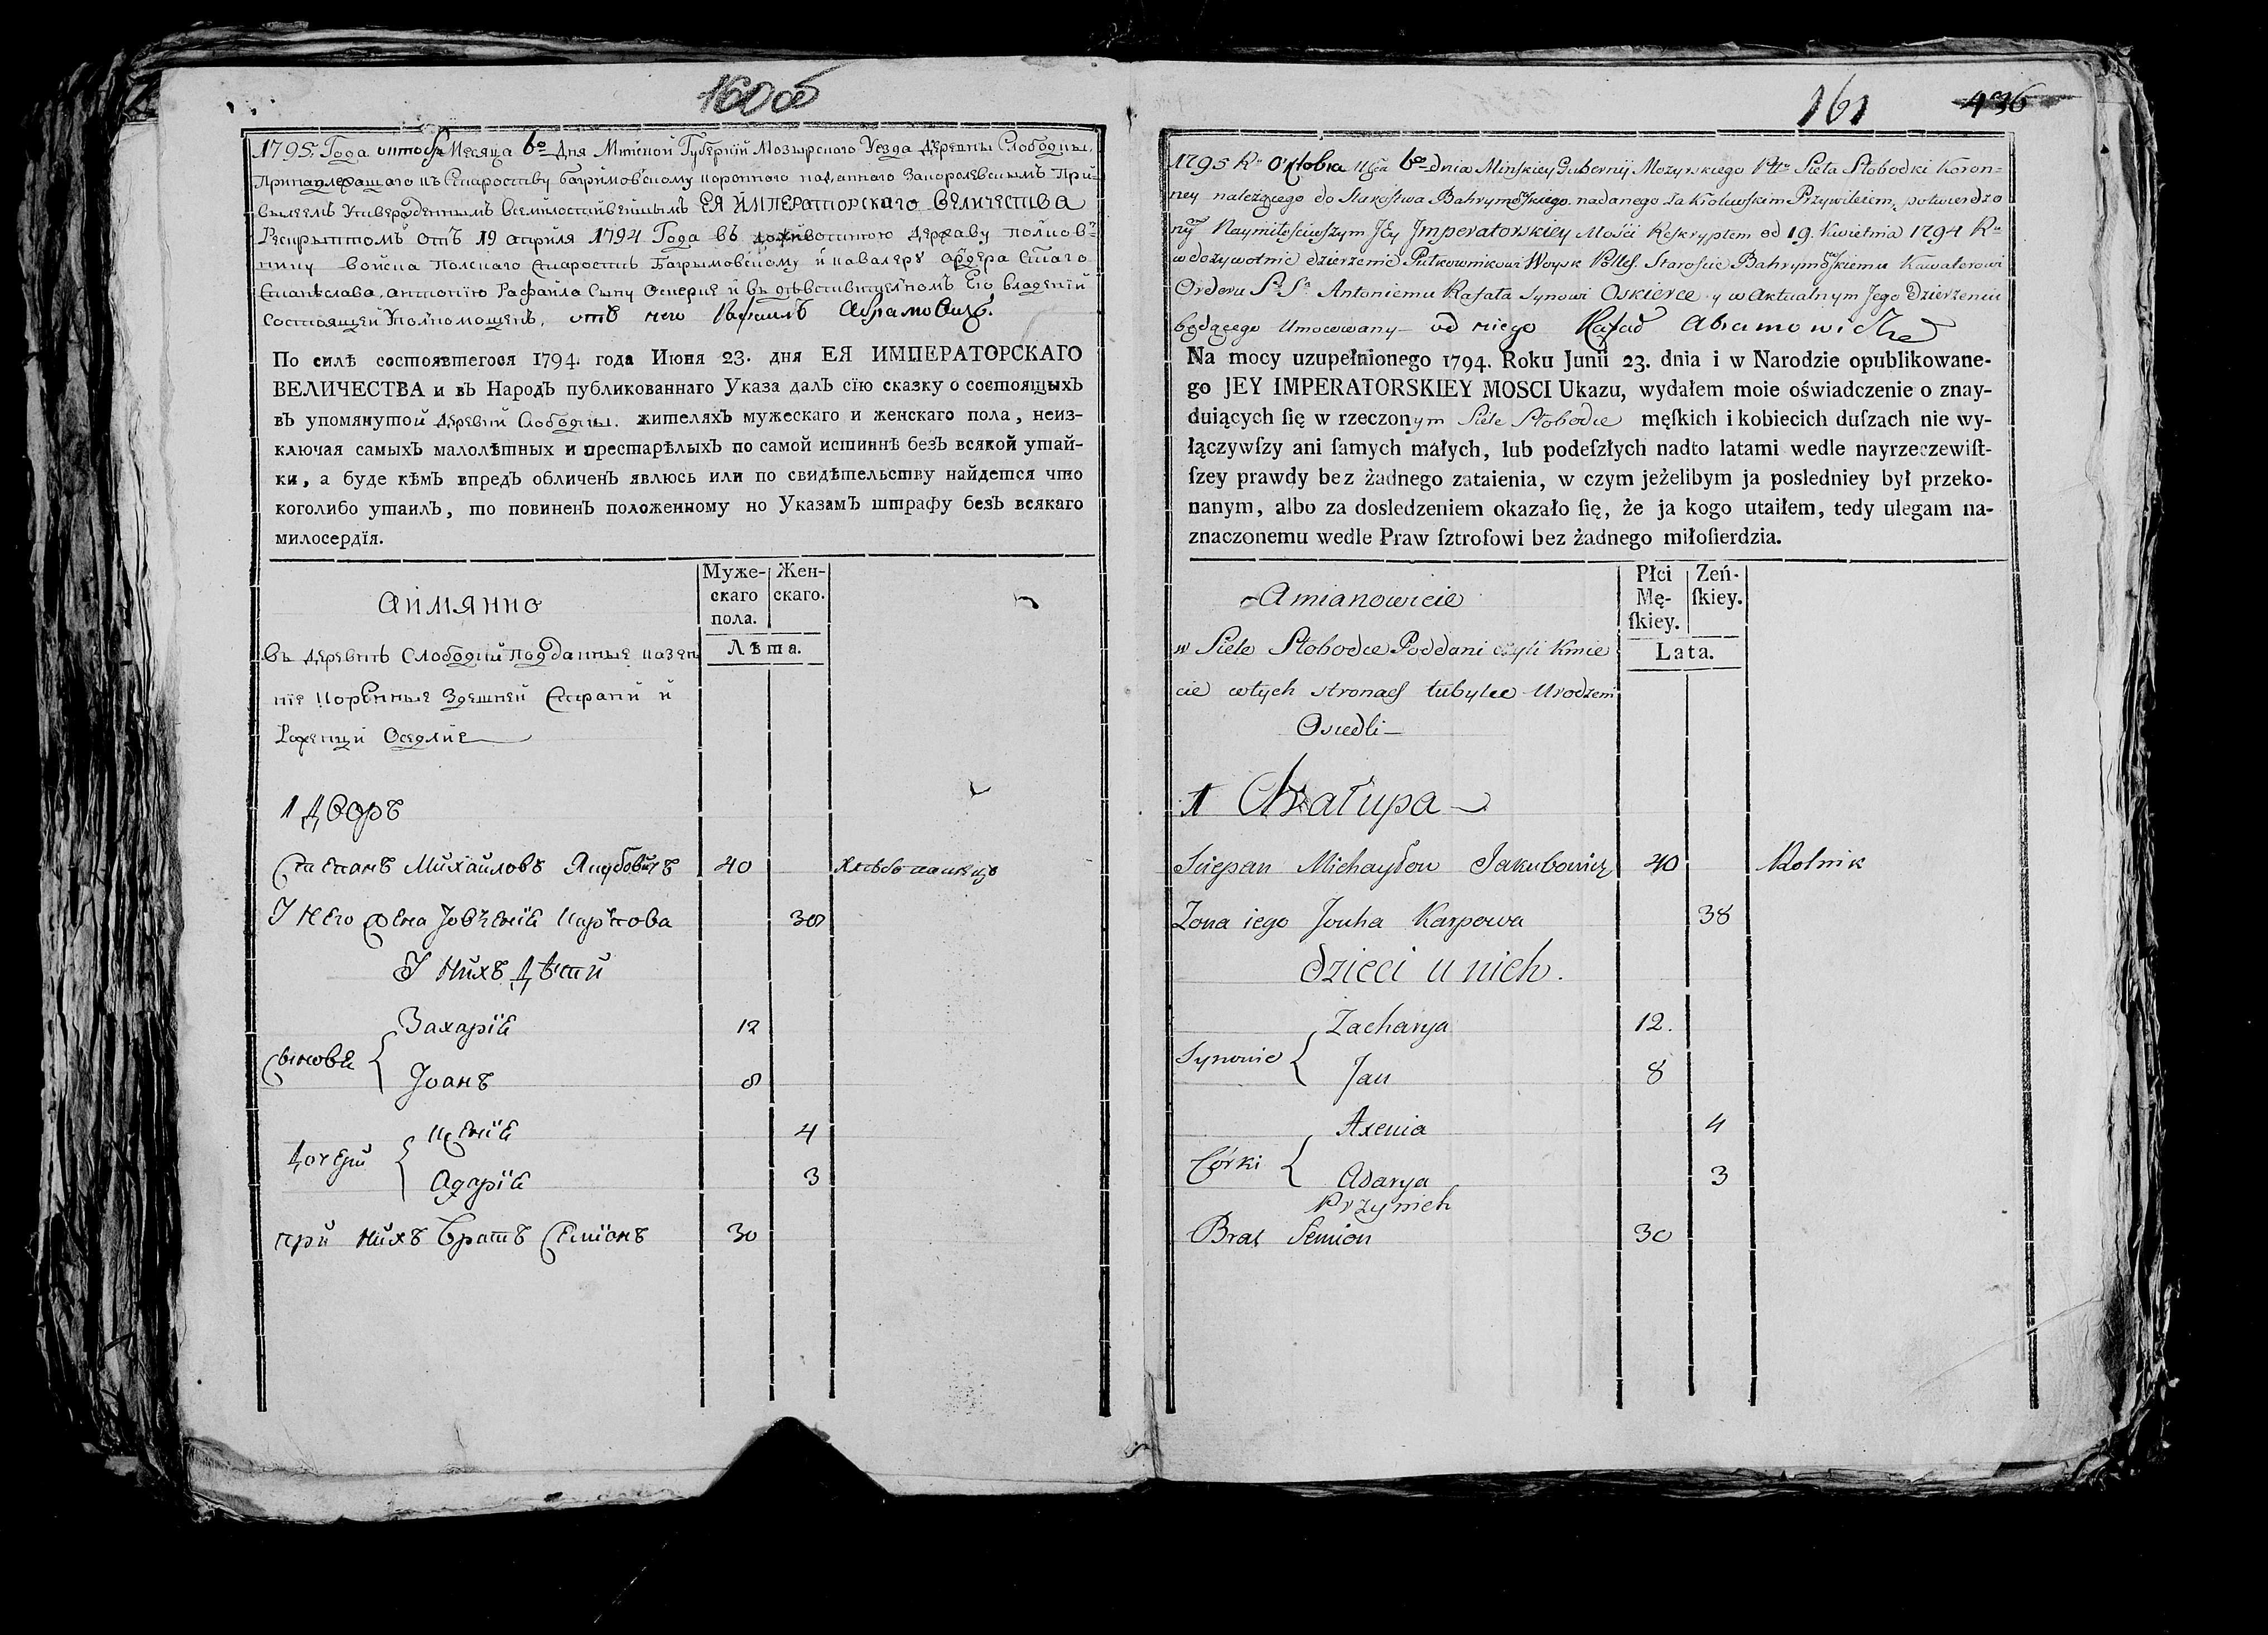 160 об
1795. Года октобр Месяца 6го Дня Минской Губерний Мозырского Уезда Деревны Слободкы,
Принадлежащаго къ Староству Багримовскому коронного наданного Закоролевскимъ При-
вылеемъ Утвержденнымъ всемилостивейшымъ ЕЯ ИМПЕРАТОРСКАГО ВЕЛИЧЕСТВА
Рескрыптомъ отъ 19 априля 1794 Года въ доживотнюю державу полков-
нику войска Полскаго Старостъ Багрымовскому й кавалеру ордера Стаго
Станъслава, антонію Рафаила Сыну Оскерке й въ дъвствителномъ Его владений
состоящей Уполномощенъ, отъ него Рафаилъ Абрамовичъ.
По силѣ состоявшегося 1794. года Июня 23. дня ЕЯ ИМПЕРАТОРСКАГО
ВЕЛИЧЕСТВА и въ НародЪ публикованнаго Указа далЪ сїю сказку о состоящыхЪ
въ упомянутой деревни Слободкы. жителяхЪ мужескаго и женскаго пола, неиз-
ключая самыхЪ малолѣтных и престарѣлыхЪ по самой истиннѣ безЪ всякой утай-
ки, а буде кѣмЪ впредЪ обличенЪ явлюсь или по свидѣтельству найдется что
коголибо утаилЪ, то повиненЪ положенному но УказамЪ штрафу безЪ всякаго
милосердїя.
АЙМЯННО
Муже-
скаго
пола.
Жен-
скаго.
Лѣта.
въ деревнъ Слободки подданные казен
ніе коронные Здешней Старани й
Роженци Оседліе
1 Дворъ
Степанъ Михайловъ Якубовичъ 40 Хлѣбопашецъ
У Него жена Јовгенія Карпова 38
У Нихъ Дѣти
Захарій 12
Сыновя
Јоанъ 8
Ксенія 4
Дочери
Адарія 3
при нихъ братъ Семіонъ 30
161 436
1795 Ru Oktobra Msca 6go dnia Minskiey Gubernij Mozyrskiego Pttu Sieła Słobodki Koron=
ney należącego do Starostwa Bahrymowskiego nadanego Za Krolewskim Przywilejem, potwierdzo
nym Naymiłościwszym JEy Imperatorskiey Mości Reskryptem od 19. Kwietnia 1794 Ru
w dożywotnie dzierżenie Pułkownikowi Woysk Polls. Staroście Bahrymowskiemu Kawalerowi
Orderu S. Sa Antoniemu Rafała Synowi Oskierce y w Aktualnym Jego Dzierżeniu
będącego Umocowany od niego Rafał Abramowicz
Na mocy uzupełnionego 1794. Roku Junii 23. dnia i w Narodzie opublikowane-
go JEY IMPERATORSKIEY MOSCI Ukazu, wydałem moie oświadczenie o znay-
duiących ſię w rzeczonym Siele Słobodce męſkich i kobiecich duſzach nie wy-
łączywſzy ani ſamych małych, lub podeſzłych nadto latami wedle nayrzeczewiſt-
ſzey prawdy bez żadnego zataienia, w czym jeżelibym ja posledniey był przeko-
nanym, albo za dosledzeniem okazało ſię, że ja kogo utaiłem, tedy ulegam na-
znaczonemu wedle Praw ſztrofowi bez żadnego miłoſierdzia.
Amianowicie
Płci
Mę-
ſkiey.
Zeń-
ſkiey.
Lata.
w Siele Słobodce Poddani czyli Kmie
cie wtych stronach tubylce Urodzeni
Osiedli
1 Chałupa
Sciepan Michayłow Jakubowicz 40 Rolnik
Zona iego Jouha Karpowa 38
dzieci u nich.
Zacharya 12.
Synowie
Jan 8
Axenia 4
Córki
Adarya 3
Przy nich
Brat Semion 30